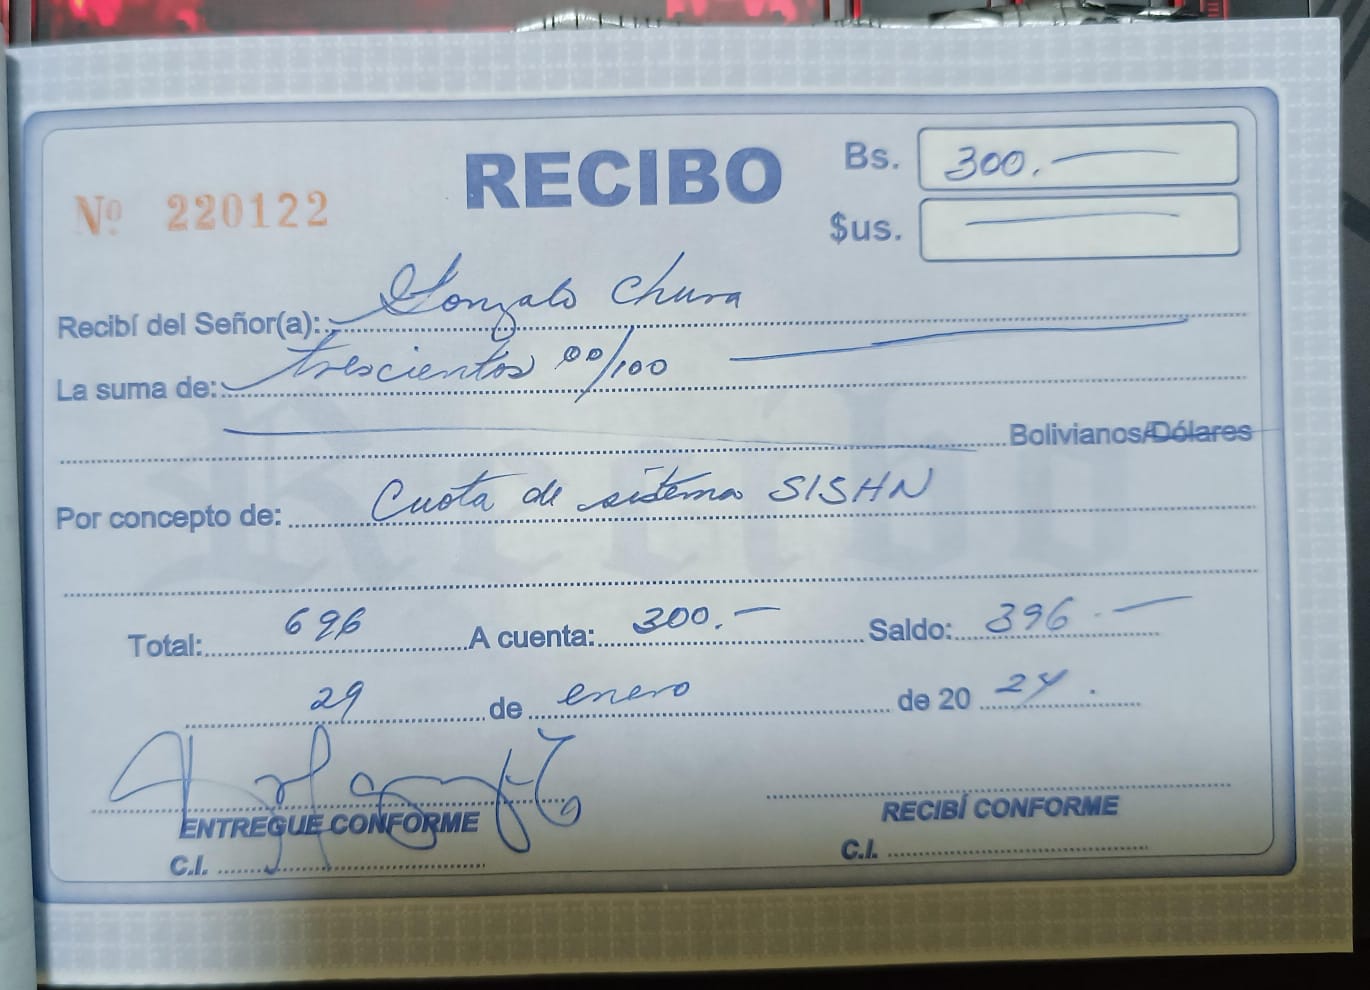 RECIBO
Bs. 300.
Nº 220122
$us.
Recibí del Señor(a): Gonzalo Chura
La suma de: trescientos 00/100
Bolivianos/Dólares
Por concepto de: Cuota de sistema SISHN
Total: 696 A cuenta: 300.— Saldo: 396.—
29 de enero de 20 24.
ENTREGUE CONFORME
RECIBÍ CONFORME
C.I.
C.I.